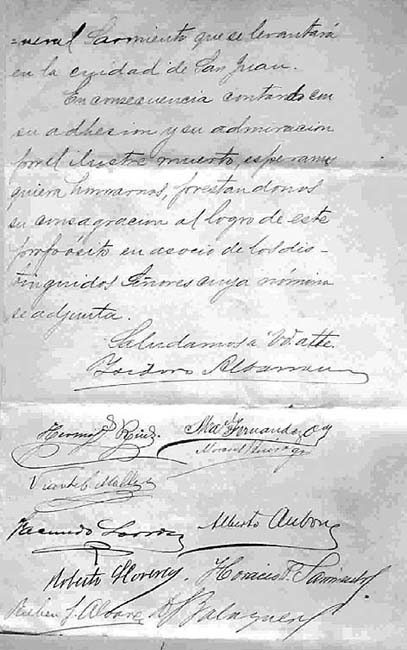 =neral Sarmiento que se levantará
en la ciudad de San Juan.
En consecuencia contando con
su adhesion y su admiracion
por el ilustre muerto, esperamos
quiera honrrarnos, prestandonos
su consagracion al logro de este
propósito en asocio de los dis-
tinguidos Señores cuya nómina
se adjunta.
Saludamos a Vd. atte.
Isidoro Albarracin
Ruiz Fernandez
Vicente C. Mallea
Facundo Alberto Aubone
Roberto Horacio Sarmiento
Ruben J. Alvarez D. Balaguer